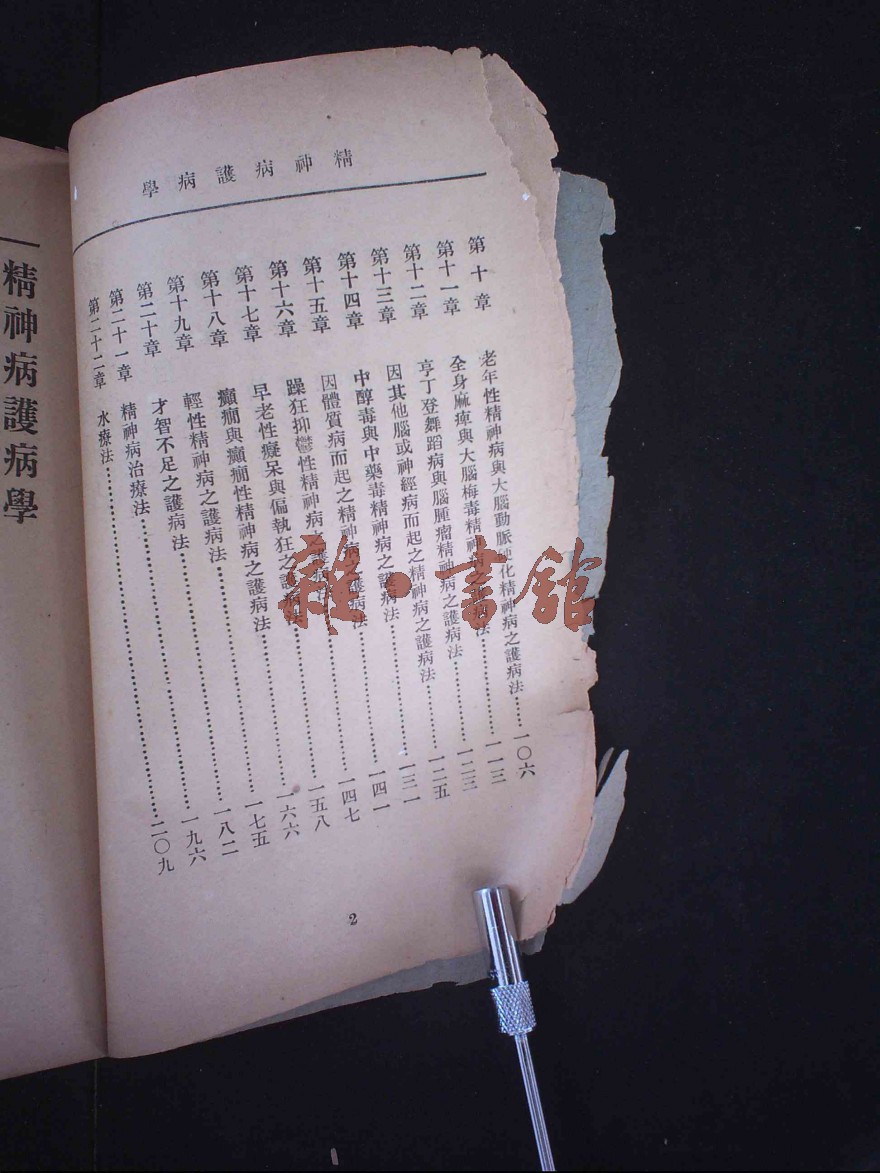 精神病護病學
第十章 老年性精神病與大腦動脈硬化精神病之護病法……一〇六
第十一章 全身麻痺與大腦梅毒精神病之護病法……一一三
第十二章 亨丁登舞蹈病與腦腫瘤精神病之護病法……一二三
第十三章 因其他腦或神經病而起之精神病之護病法……一二五
第十四章 中醇毒與中藥毒精神病之護病法……一三一
第十五章 因體質病而起之精神病之護病法……一四一
第十六章 躁狂抑鬱性精神病之護病法……一四七
第十七章 早老性癡呆與偏執狂之護病法……一五八
第十八章 癲癇與癲癇性精神病之護病法……一六六
第十九章 輕性精神病之護病法……一七五
第二十章 才智不足之護病法……一八二
第二十一章 精神病治療法……一九六
第二十二章 水療法……二〇九
2
精神病護病學
雜·書館